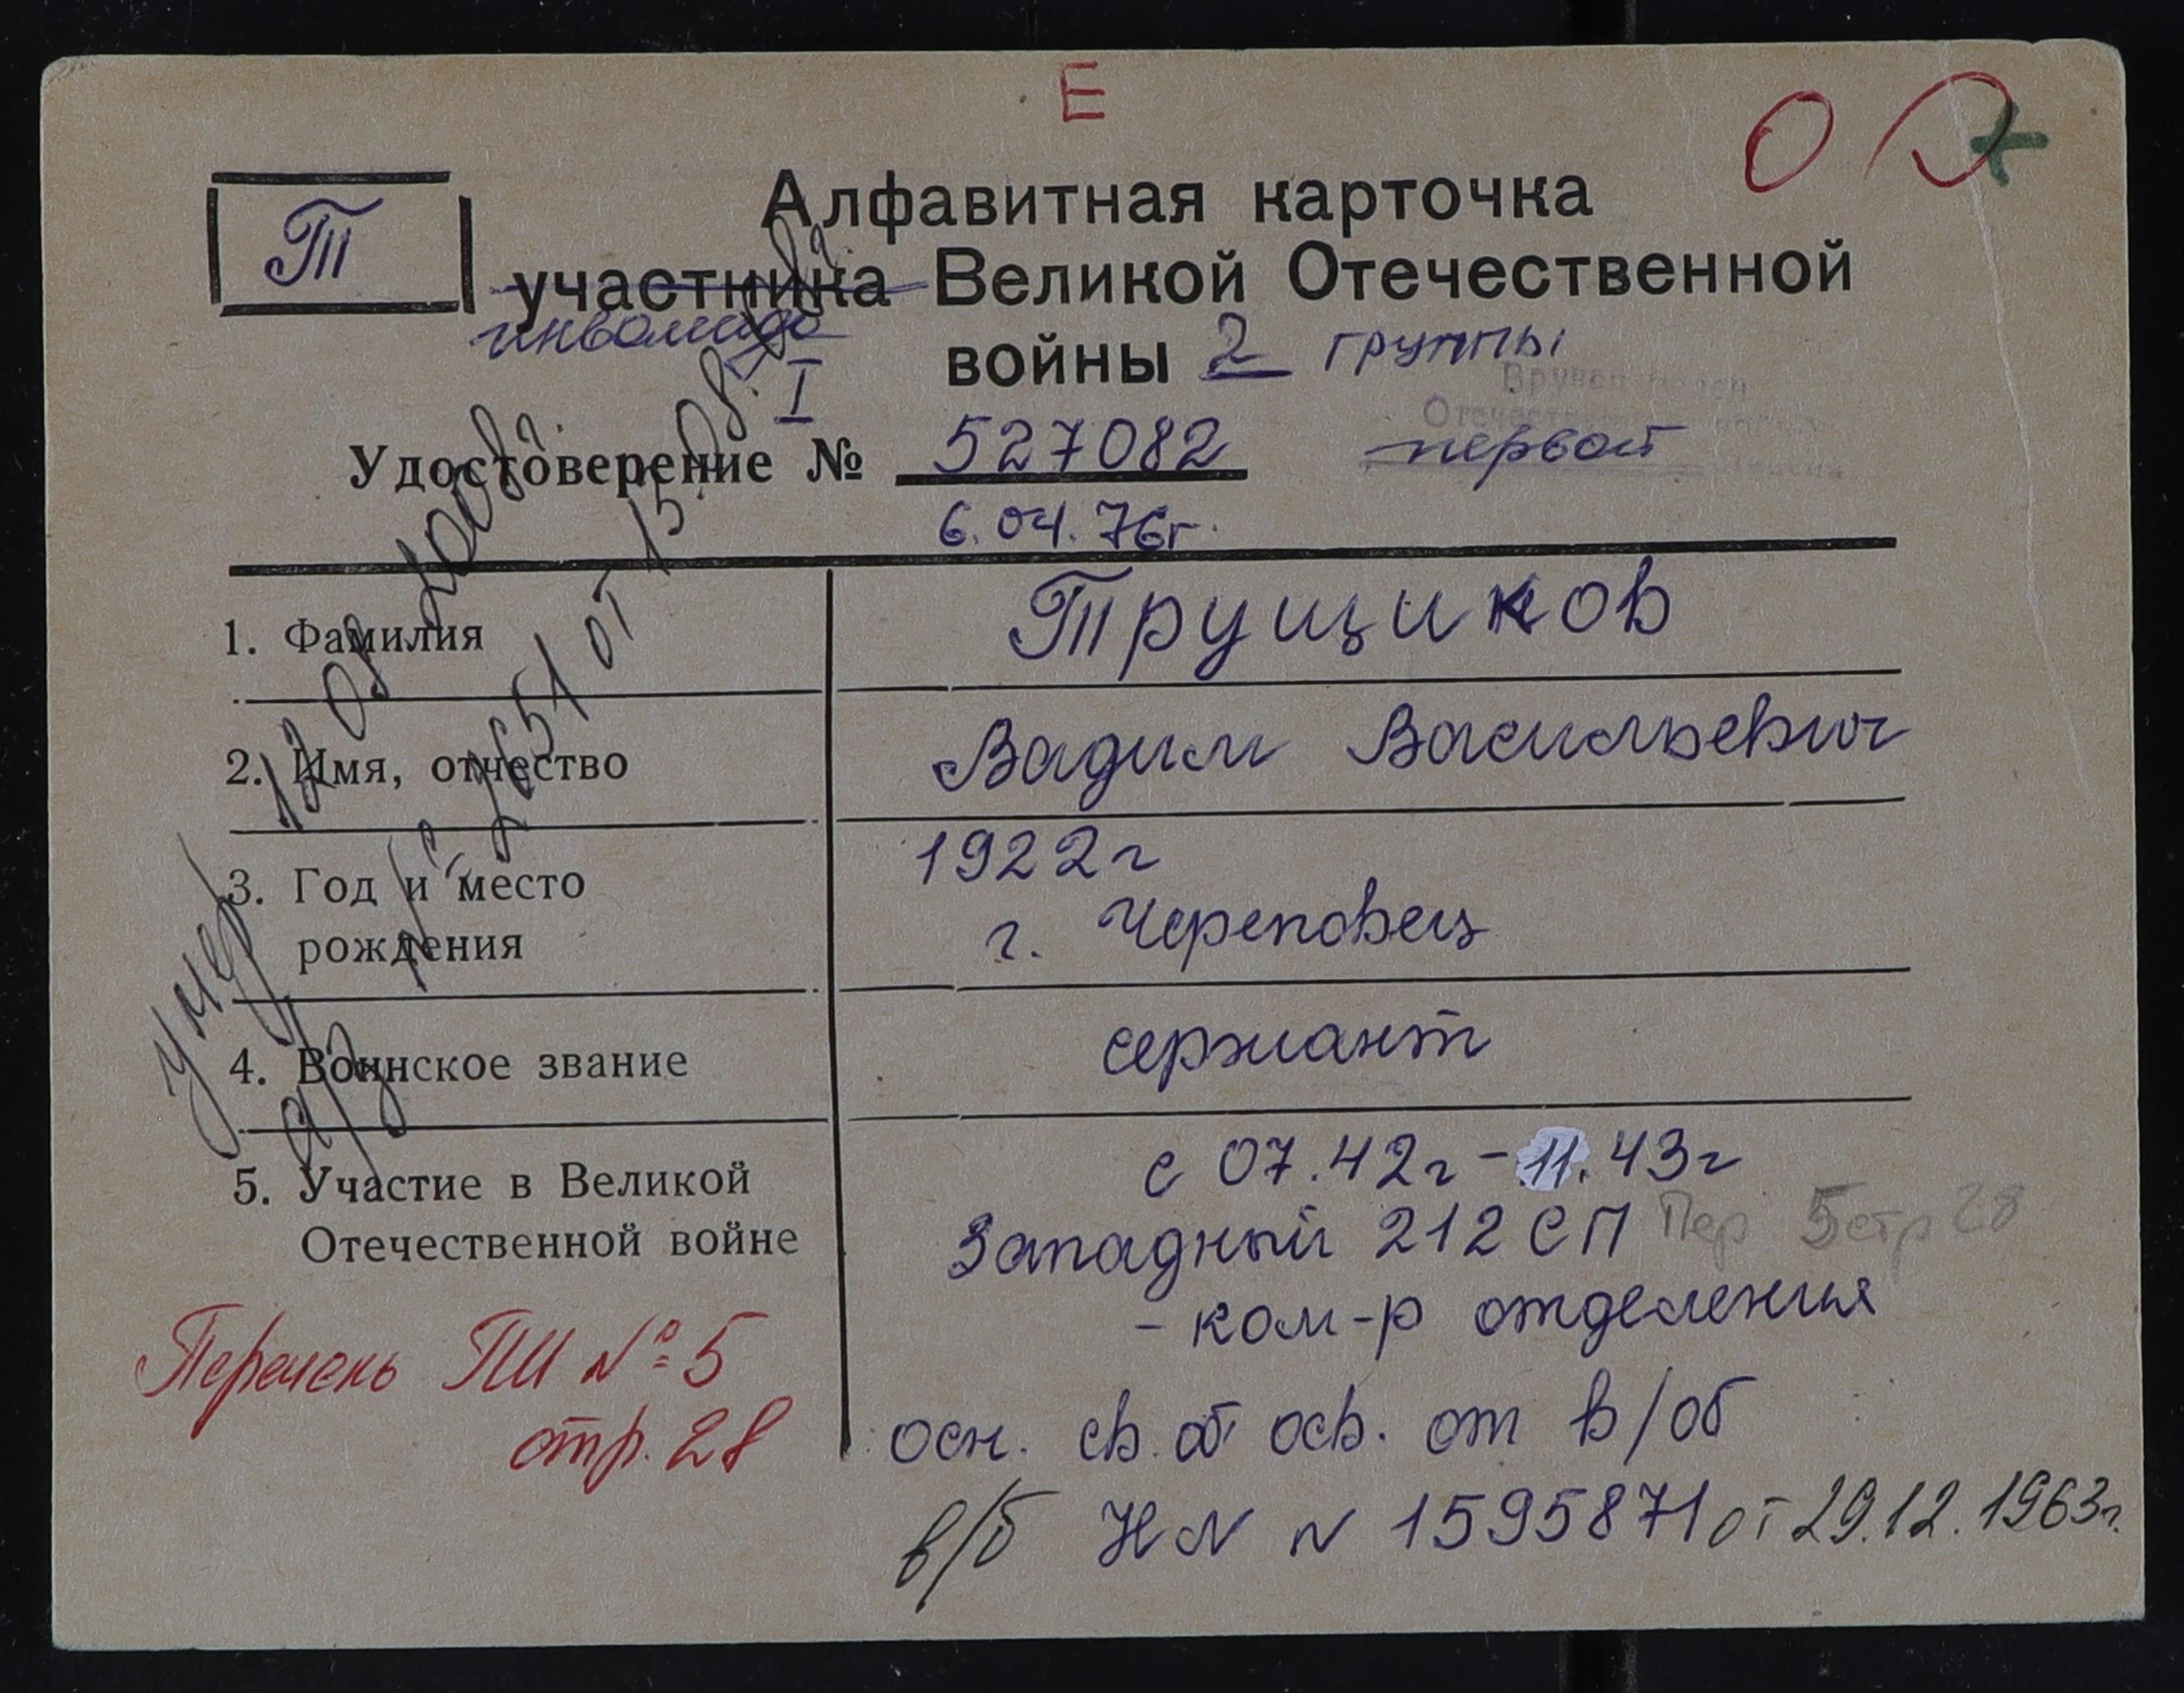 Е
О
Т
Алфавитная карточка
участника Великой Отечественной
инвалида
войны 2 группы
I
Вручен орден
Отечественной войны
первой степени
Удостоверение № 527082
6.04.76г.
1. Фамилия
Трущиков
2. Имя, отчество
Вадим Васильевич
3. Год и место
рождения
1922г
г. Череповец
4. Воинское звание
сержант
5. Участие в Великой
Отечественной войне
с 07.42г - 11.43г
Западный 212 СП Пер 5 стр 28
- ком-р отделения
осн. св. об осв. от в/об
в/б НЛ N 1595871 от 29.12.1963г.
Перечень ГШ № 5
стр. 28
умер 12 08 2008г.
от 15.08.